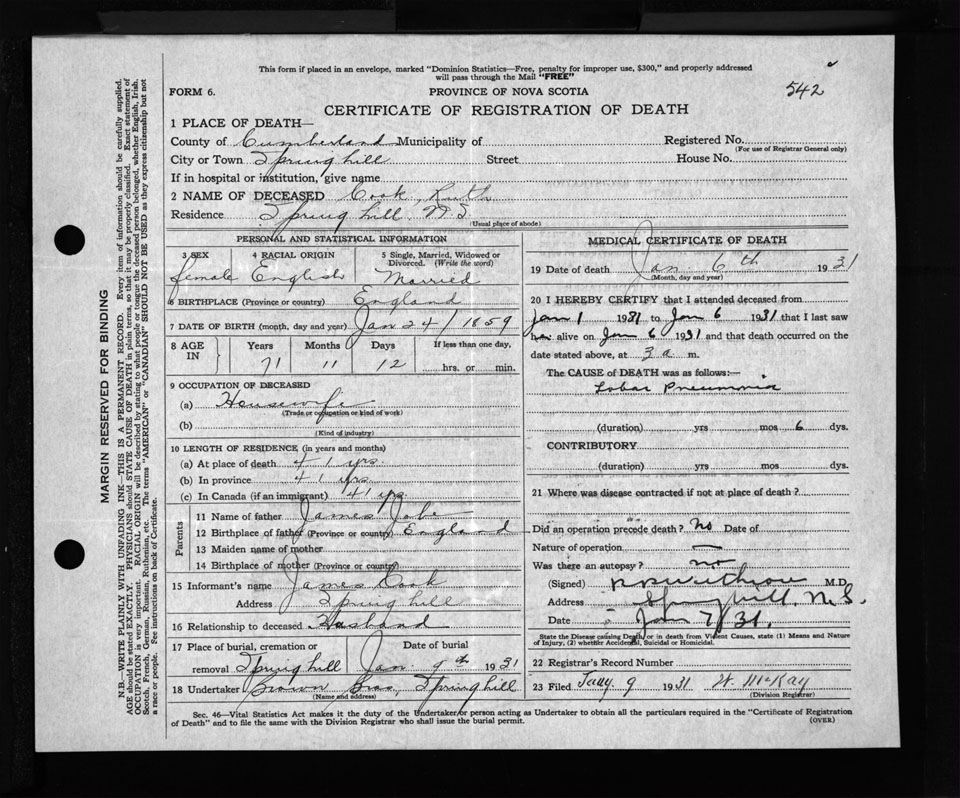 This form if placed in an envelope, marked "Dominion Statistics—Free, penalty for improper use, $300," and properly addressed
will pass through the Mail "FREE"
FORM 6.
PROVINCE OF NOVA SCOTIA
542
CERTIFICATE OF REGISTRATION OF DEATH
1 PLACE OF DEATH—
County of Cumberland Municipality of Registered No.
(For use of Registrar General only)
City or Town Springhill Street House No.
If in hospital or institution, give name
2 NAME OF DECEASED Cook, Ruth
Residence Springhill N.S
(Usual place of abode)
PERSONAL AND STATISTICAL INFORMATION
3 SEX 4 RACIAL ORIGIN 5 Single, Married, Widowed or
Divorced. (Write the word)
female English Married
6 BIRTHPLACE (Province or country) England
7 DATE OF BIRTH (month, day and year) Jan 24/1859
8 AGE IN Years Months Days If less than one day,
71 11 12 hrs. or min.
9 OCCUPATION OF DECEASED
(a) Housewife
(Trade or occupation or kind of work)
(b)
(Kind of industry)
10 LENGTH OF RESIDENCE (in years and months)
(a) At place of death 41 yrs.
(b) In province 41 yrs
(c) In Canada (if an immigrant) 41 yrs
Parents
11 Name of father James
12 Birthplace of father (Province or country) England
13 Maiden name of mother
14 Birthplace of mother (Province or country)
15 Informant's name James Cook
Address Springhill
16 Relationship to deceased Husband
17 Place of burial, cremation or Date of burial
removal Springhill Jan 9th 1931
18 Undertaker Brown Bros, Springhill
(Name and address)
MEDICAL CERTIFICATE OF DEATH
19 Date of death Jan 6th 1931
(Month, day and year)
20 I HEREBY CERTIFY that I attended deceased from
Jan 1 1931 to Jan 6 1931 that I last saw
her alive on Jan 6 1931 and that death occurred on the
date stated above, at 3 a m.
The CAUSE of DEATH was as follows:—
Lobar Pneumonia
(duration) yrs mos 6 dys.
CONTRIBUTORY
(duration) yrs. mos dys.
21 Where was disease contracted if not at place of death?
Did an operation precede death? No Date of
Nature of operation —
Was there an autopsy? no
(Signed) M.D
Address Springhill, N.S.
Date Jan 7/31.
State the Disease causing Death, or in death from Violent Causes, state (1) Means and Nature
of Injury, (2) whether Accidental, Suicidal or Homicidal.
22 Registrar's Record Number
23 Filed Jany 9 1931 W. McKay
(Division Registrar)
Sec. 46—Vital Statistics Act makes it the duty of the Undertaker or person acting as Undertaker to obtain all the particulars required in the "Certificate of Registration
of Death" and to file the same with the Division Registrar who shall issue the burial permit.
(OVER)
MARGIN RESERVED FOR BINDING
N.B.—WRITE PLAINLY WITH UNFADING INK—THIS IS A PERMANENT RECORD. Every item of information should be carefully supplied.
AGE should be stated EXACTLY. PHYSICIANS should STATE CAUSE OF DEATH in plain terms, so that it may be properly classified. Exact statement of
OCCUPATION is very important. RACIAL ORIGIN will be described by stating to what people or tongue the deceased person belonged, whether English, Irish,
Scotch, French, German, Russian, Ruthenian, etc. The terms "AMERICAN" or "CANADIAN" SHOULD NOT BE USED as they express citizenship but not
a race or people. See instructions on back of Certificate.